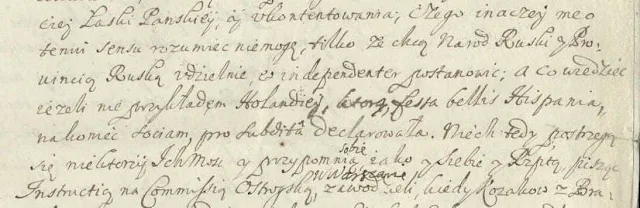 ciey Łaski Pańskiey, y vkontentowania, czego inaczey me o
temu sensu rozumiec niemogę, tilko że chcą Narod Ruski y Pro-
uincią Ruską vdzielnie, et independenter postanowic; a co wiedziec
ieżeli nie przykładem Holandiey, ktorą, festa bellis Hispania,
nakoniec sociam, pro subdita declarowała. Niech tedy postrzegą
się niektorzy Ich Mosc y przypomnią sobie iako y siebie y Rzptą, pisząc
w Warszawie
Instructią na Commissią Ostrogską, zawodzieli, kiedy Kozakow z Bra-